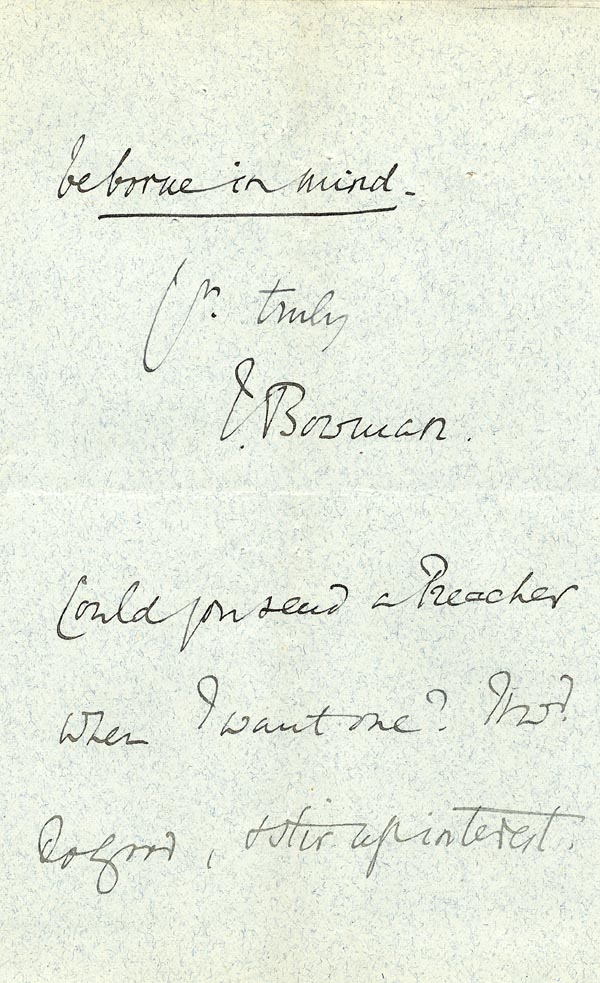 be borne in mind -
Yr. truly
J. Bowman.
Could you send a Preacher
when I want one? It wd.
do good, & stir up interest.